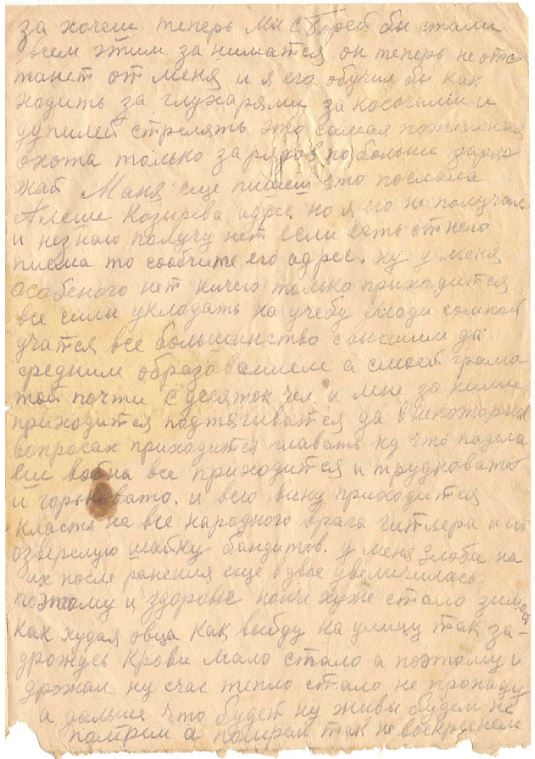 за хочеш теперь Мы с Борей бы стали
всем этим заниматся он теперь не отс
танет от меня и я его обучил бы как
ходить за глухарями за косочами и
дупилей стрелять это самая
охота только зарядов по больше заря
жай Маня еще пишет что послала
Алеше Козырева адрес но я его не получал
и незнаю получу нет если есть от него
писма то сообчите его адрес. ну у меня
особеного нет ничего только приходится
все силы укладать на учебу люди сомной
учатся все большинство свысшим да
средним образованием а смоей грамо
той почти с десяток чел. и мне за ними
приходится подтягиватся да в некоторых
вопросах приходится плавать ну что подела
еш война все приходится и трудновато
и горьковато. и всю вину приходится
класть на все народного врага гитлера и его
озверелую шайку бандитов. у меня злоба на
их после ранения еще вдвое увеличилась
поэтому и здоровье хуже стало зимой
как худая овца как выйду на улицу так за-
дрожусь крови мало стало а поэтому и
дрожал ну счас тепло стало не пропаду
а дальше что будет ну живы будем не
помрем а помрем так не воскреснем